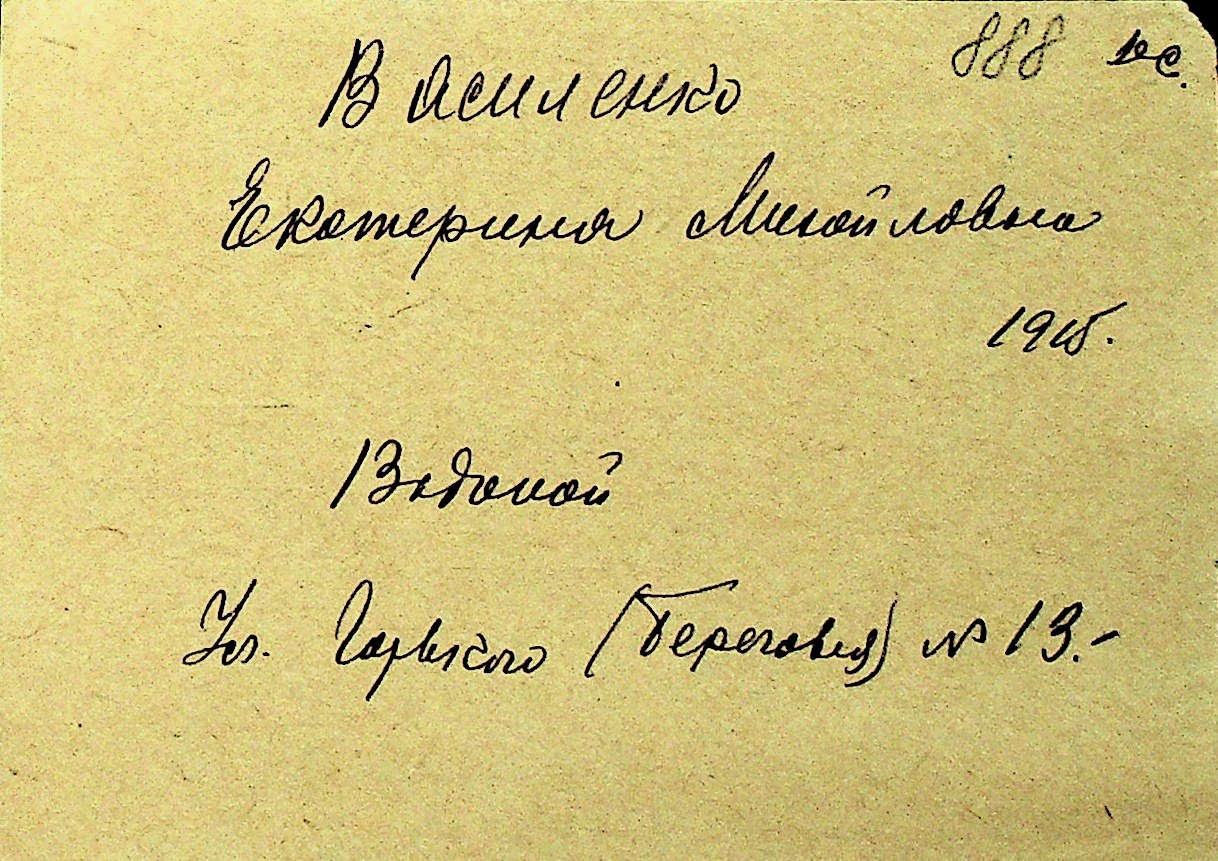 888
Василенко
Екатерина Михайловна
1915.
Водопой
Ул. Горького (Береговая) № 13.-